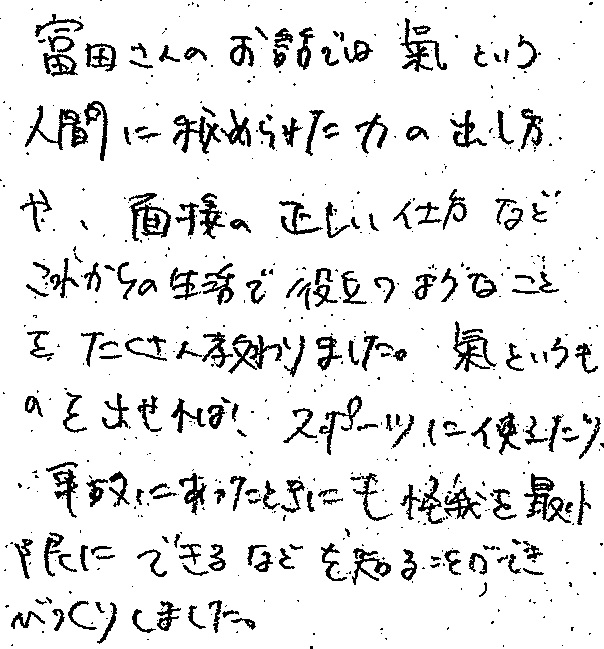 富田さんのお話では氣という
人間に秘められた力の出し方
や、面接の正しい仕方など
これからの生活で役立つようなこと
をたくさん教わりました。氣というも
のを出せれば、スポーツに使えたり、
事故にあったときにも怪我を最小
限にできるなどを知ることができ
びっくりしました。